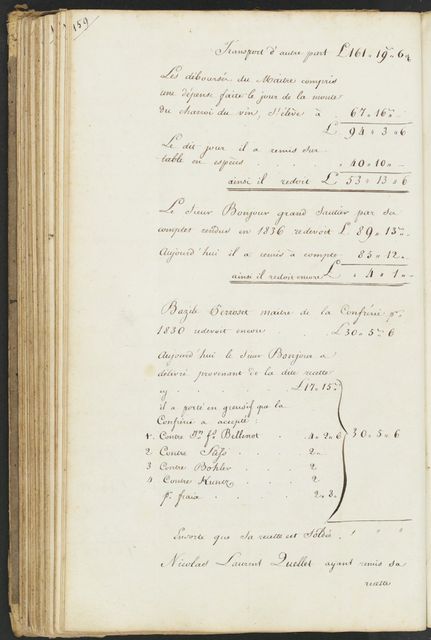 159
Transport d'autre part L 161 " 19 " 6
Les déboursés du Maitre compris
une dépense faite le jour de la monte
du charroi du vin, s'élève à 67 " 16 "
L 94 " 3 " 6
Le dit jour il a remis sur
table en espèces . . . 40 " 10 "
ainsi il redoit L 53 " 13 " 6
Le Sieur Bonjour grand Sautier par ses
comptes rendus en 1836 redevoit L 89 " 13 "
Aujourd'hui il a remis à compte 85 " 12 "
ainsi il redoit encore L " 4 " 1 "
Bazile Perroset maitre de la Confrérie pr.
1830 redevoit encore . . . L 30 " 5 " 6
Aujourd'hui le Sieur Bonjour a
délivré provenant de la dite recette
cy . . . . . L 17 " 15
il a porté en que la
Confrérie a accepté :
1. Contre Jn. fs. Bellenot . 4 " 2 " 6 30 " 5 " 6
2 Contre . . . 2 "
3 Contre Böhler . . 2
4 Contre Kuntz . . 2
pr. frais . . . 2 " 8
Ensorte que sa recette est Soldée . " " "
Nicolas Laurent Quellet ayant remis sa
recette